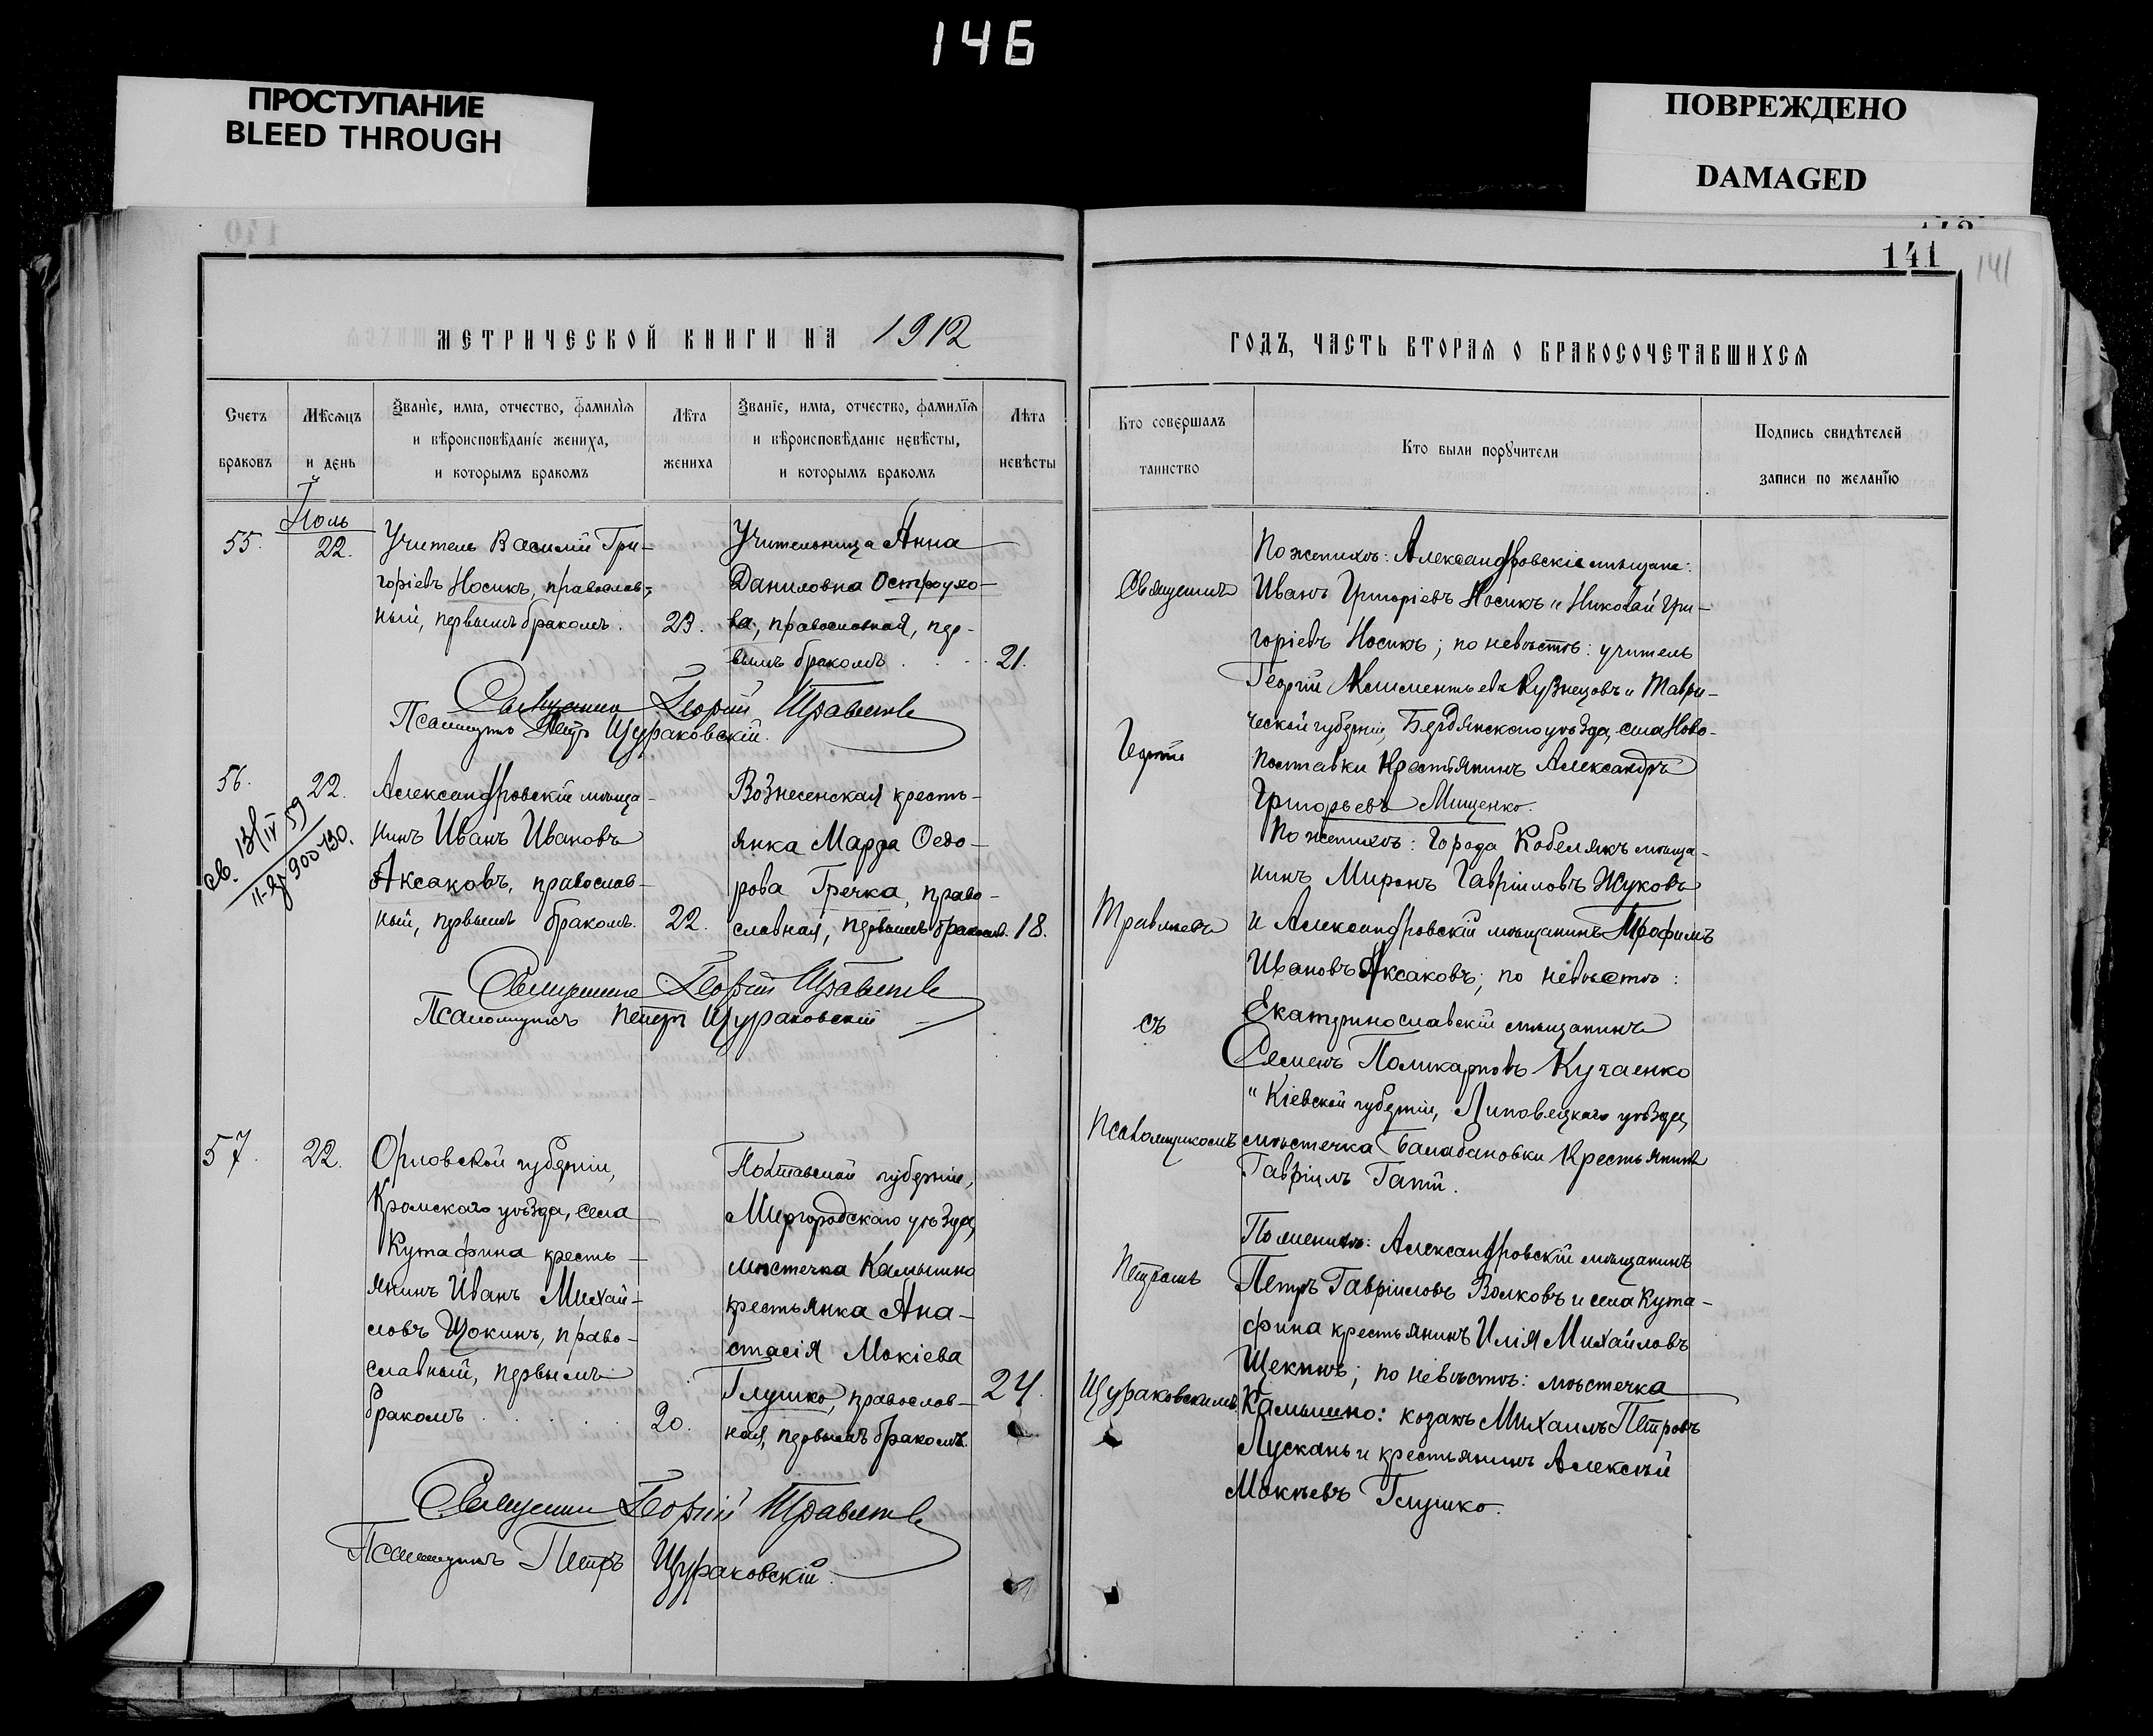 146
ПРОСТУПАНИЕ
BLEED THROUGH
ПОВРЕЖДЕНО
DAMAGED
141
141
МЕТРИЧЕСКОЙ КНИГИ НА 1912
Счетъ
браковъ
Мѣсяцъ
и день
Званіе, имя, отчество, фамилія
и вѣроисповѣданіе жениха,
и которымъ бракомъ
Лѣта
жениха
Званіе, имя, отчество, фамилія
и вѣроисповѣданіе невѣсты,
и которымъ бракомъ
Лѣта
невѣсты
Іюль
55.
22.
Учитель Василій Гри-
горіевъ Носикъ, православ-
ный, первымъ бракомъ.
23.
Учительница Анна
Даниловна Остроухо-
ва, православная, пер-
вымъ бракомъ
21.
Священникъ Георгій Травлѣевъ
Псаломщикъ Петръ Щураковскій.
56.
22.
св. 13/IV 59
900130.
Александровскій мѣща-
нинъ Иванъ Ивановъ
Аксаковъ, православ-
ный, первымъ бракомъ.
22.
Вознесенская кресть-
янка Марфа Ѳедо-
рова Гречка, право-
славная, первымъ бракомъ.
18.
Священникъ Георгій Травлѣевъ
Псаломщикъ Петръ Щураковскій
57.
22.
Орловской губерніи,
Кромскаго уѣзда, села
Кутафина кресть-
янинъ Иванъ Михай-
ловъ Щокинъ, право-
славный, первымъ
бракомъ
20.
Полтавской губерніи,
Миргородскаго уѣзда,
мѣстечка Камышно
крестьянка Ана-
стасія Мокіева
Глушко, православ-
ная, первымъ бракомъ.
24.
Священникъ Георгій Травлѣевъ
Псаломщикъ Петръ Щураковскій.
ГОДЪ, ЧАСТЬ ВТОРАЯ О БРАКОСОЧЕТАВШИХСЯ
Кто совершалъ
таинство
Кто были поручители
Подпись свидѣтелей
записи по желанію
Священникъ
Георгій
Травлѣевъ
съ
Псаломщикомъ
Петромъ
Щураковскимъ.
По женихѣ: Александровскіе мѣщане:
Иванъ Григоріевъ Носикъ и Николай Гри-
горіевъ Носикъ; по невѣстѣ: учитель
Георгій Клименьтьевъ Кузнецовъ и Таври-
ческой губерніи, Бердянскаго уѣзда, села Ново-
поставки крестьянинъ Александръ
Григорьевъ Мищенко.
По женихѣ: Города Кобелякъ мѣща-
нинъ Миронъ Гавріиловъ Жуковъ
и Александровскій мѣщанинъ Трофимъ
Ивановъ Аксаковъ; по невѣстѣ:
Екатеринославскій мѣщанинъ
Семенъ Поликарповъ Кучаенко
и Кіевской губерніи, Липовецкаго уѣзда,
мѣстечка Балабановки крестьянинъ
Гавріилъ Гатій.
По женихѣ: Александровскій мѣщанинъ
Петръ Гавріиловъ Волковъ и села Кута-
фина крестьянинъ Илія Михайловъ
Щекинъ; по невѣстѣ: мѣстечка
Камышно: козакъ Михаилъ Петровъ
Лускань и крестьянинъ Алексѣй
Мокіевъ Глушко.